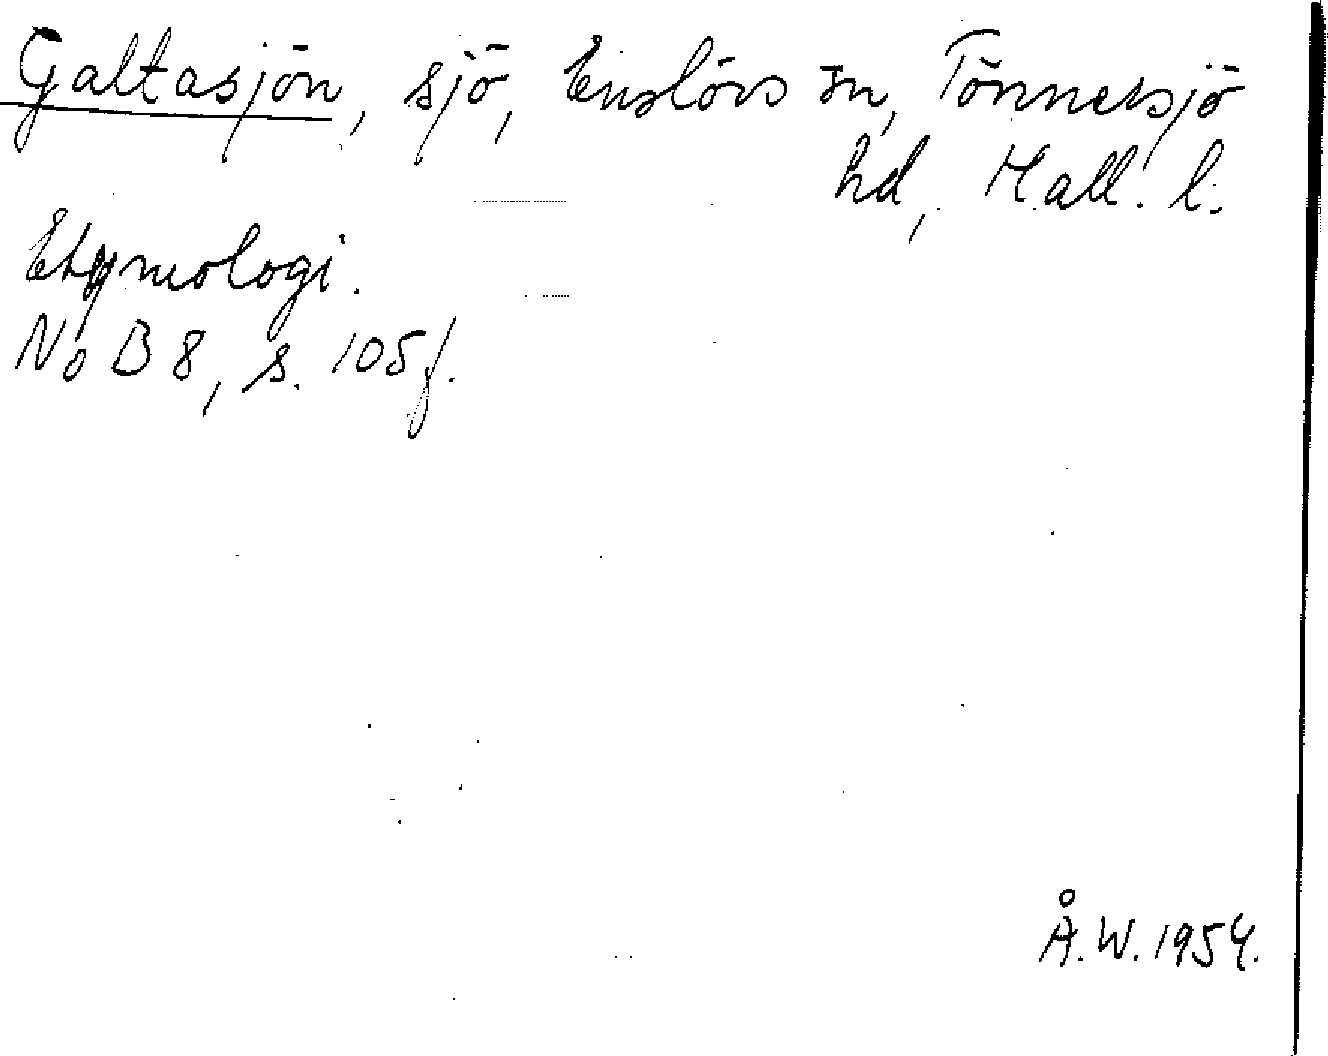 Galtasjön, sjö, Enslövs sn, Tönnersjö
hd, Hall. l.
Etymologi.
NoB 8, s. 105 f.
Å.W. 1954.